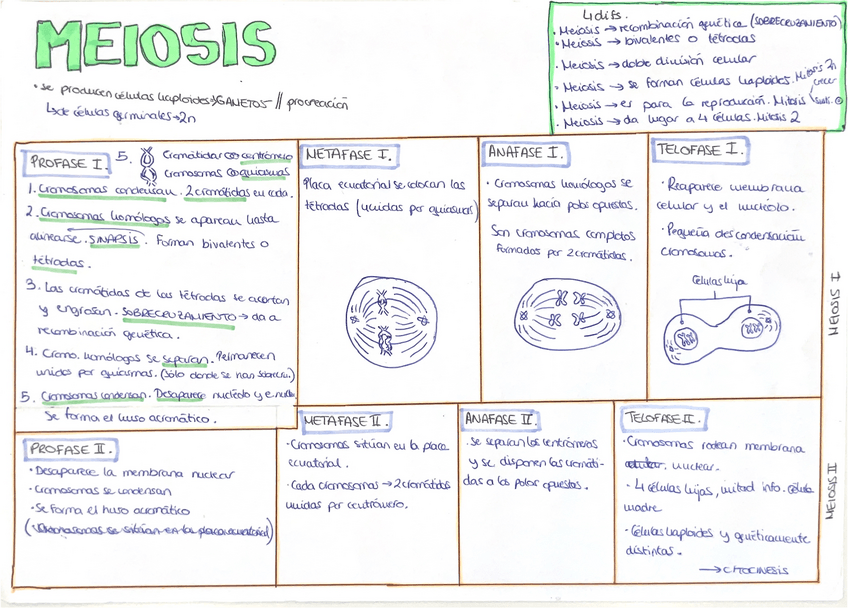 MEIOSIS
• Se producen células haploides → GAMETOS // procreación
↳ de células germinales → 2n
4 difs.
• Meiosis → recombinación genética (SOBRECRUZAMIENTO)
• Meiosis → bivalentes o tétradas
• Meiosis → doble división celular
• Meiosis → se forman células haploides. Mitosis 2n
• Meiosis → es para la reproducción. Mitosis crecer
• Meiosis → da lugar a 4 células. Mitosis 2
PROFASE I.
5. Cromátidas centrómero
Cromosomas quiasmas
1. Cromosomas condensan. 2 cromátidas en cada.
2. Cromosomas homólogos se aparean hasta
alinearse. SINAPSIS. Forman bivalentes o
tétradas.
3. Las cromátidas de las tétradas se acortan
y engrosan. SOBRECRUZAMIENTO → da a
recombinación genética.
4. Cromo. homólogos se separan. Permanecen
unidos por quiasmas. (Sólo donde se han sobrecru.)
5. Cromosomas condensan. Desaparece nucléolo y e. nucle.
Se forma el huso acromático.
METAFASE I.
Placa ecuatorial se colocan las
tétradas (unidas por quiasmas)
ANAFASE I.
• Cromosomas homólogos se
separan hacia polos opuestos.
Son cromosomas completos
formados por 2 cromátidas.
TELOFASE I.
• Reaparece membrana
celular y el nucléolo.
• Pequeña descondensación
cromosomas.
Células hija
MEIOSIS I
PROFASE II.
• Desaparece la membrana nuclear
• Cromosomas se condensan
• Se forma el huso acromático
(• Cromosomas se sitúan en la placa ecuatorial)
METAFASE II.
• Cromosomas sitúan en la placa
ecuatorial.
• Cada cromosomas → 2 cromátidas
unidas por centrómero.
ANAFASE II.
• Se separan los centrómeros
y se disponen las cromáti-
das a los polos opuestos.
TELOFASE II.
• Cromosomas rodean membrana
nuclear.
• 4 células hijas, mitad info. célula
madre
• Células haploides y genéticamente
distintas.
→ CITOCINESIS
MEIOSIS II